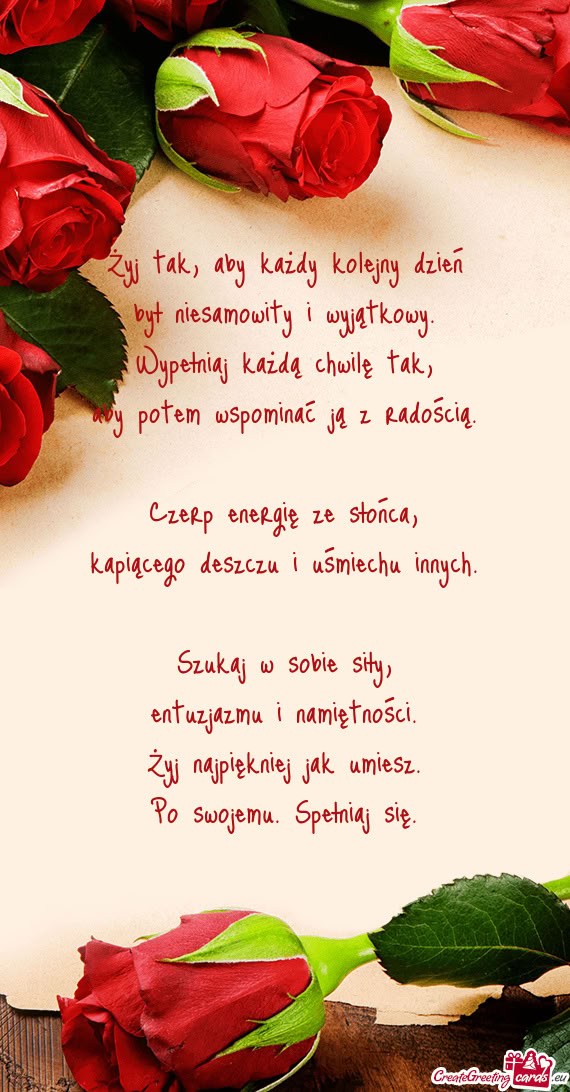 Żyj tak, aby każdy kolejny dzień
był niesamowity i wyjątkowy.
Wypełniaj każdą chwilę tak,
aby potem wspominać ją z radością.
Czerp energię ze słońca,
kapiącego deszczu i uśmiechu innych.
Szukaj w sobie siły,
entuzjazmu i namiętności.
Żyj najpiękniej jak umiesz.
Po swojemu. Spełniaj się.
CreateGreeting cards.eu